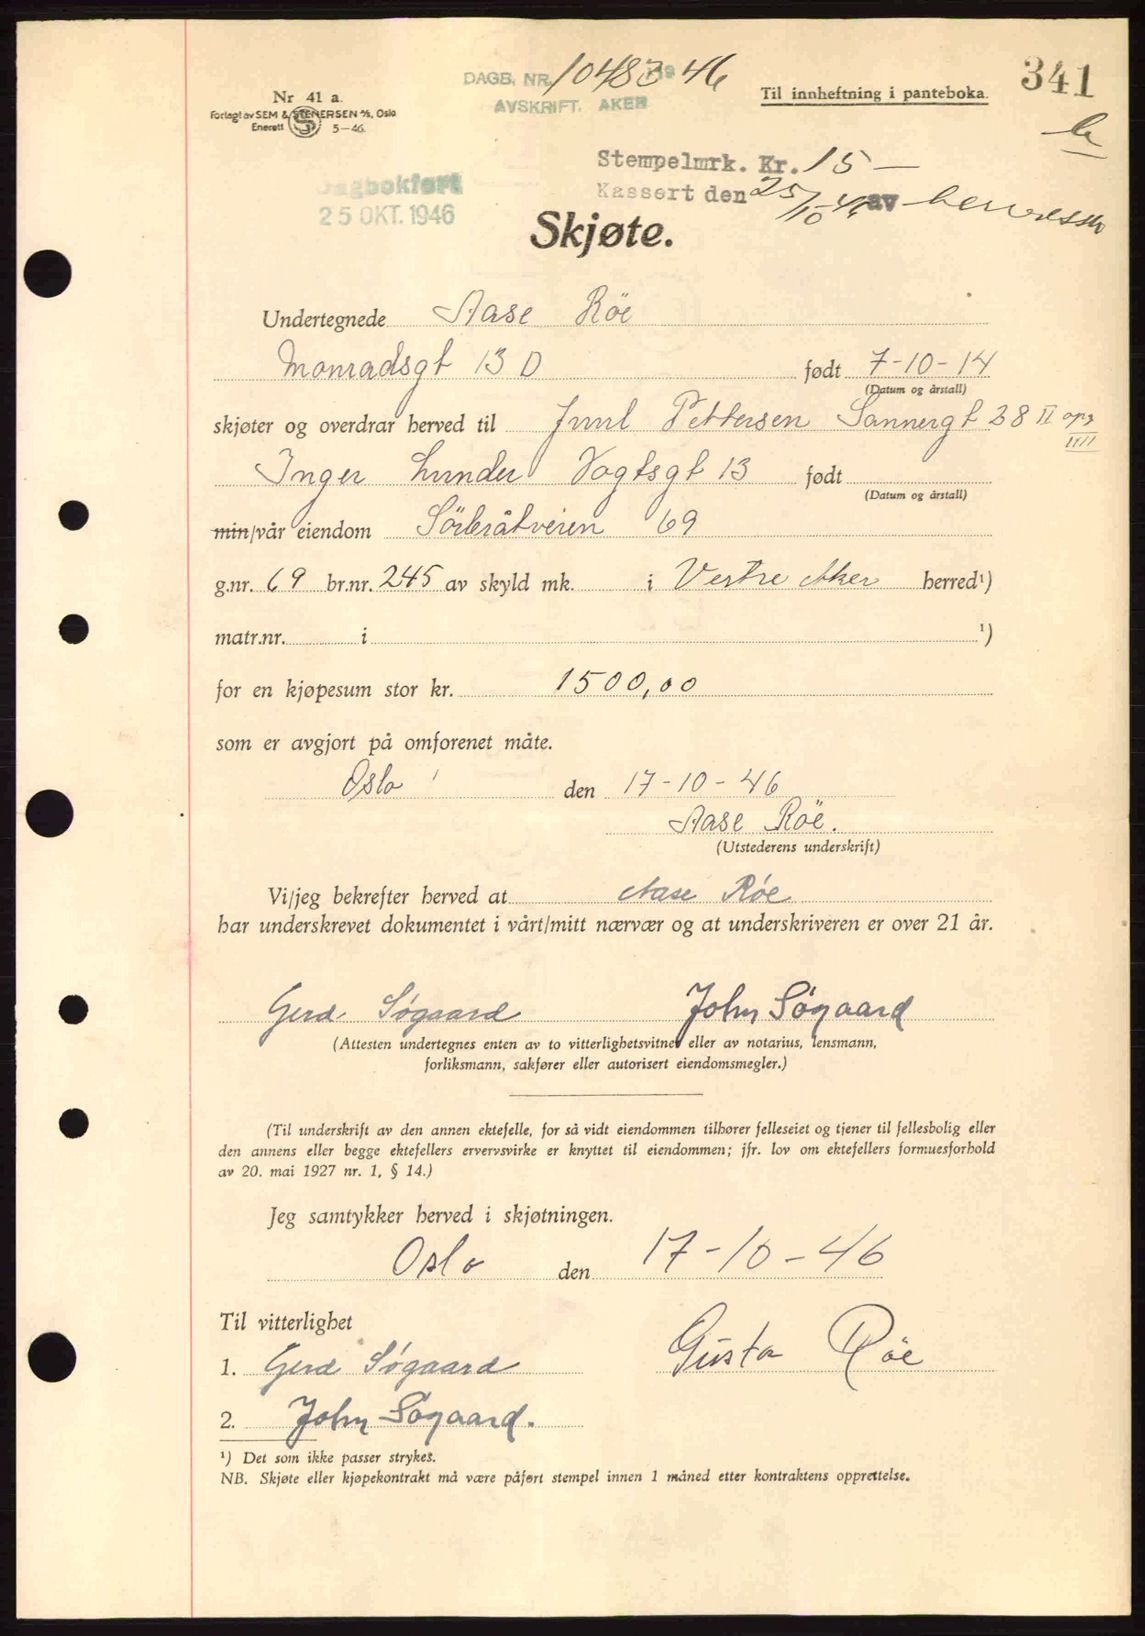 DAGB. NR. 10483 19 46
AVSKRIFT. AKER
341
Nr 41 a.
Forlagt av SEM & STENERSEN A/S, Oslo
Enerett 5-46.
Til innheftning i panteboka.
Stempelmrk. Kr. 15 —
Kassert den 25/10-46 av
Dagbokført
25 OKT. 1946
Skjøte.
Undertegnede Aase Röe
Monradsgt 13 D født 7-10-14
(Datum og årstall)
skjøter og overdrar herved til Juul Pettersen Sannergt 38 II opg
IIII
Inger Lunder Vogtsgt 13 født
(Datum og årstall)
min/vår eiendom Sörbråtveien 69
g.nr. 69 br.nr. 245 av skyld mk. i Vestre Aker herred¹)
matr.nr. i ¹)
for en kjøpesum stor kr. 1500,00
som er avgjort på omforenet måte.
Oslo den 17-10-46
Aase Röe.
(Utstederens underskrift)
Vi/jeg bekrefter herved at Aase Röe
har underskrevet dokumentet i vårt/mitt nærvær og at underskriveren er over 21 år.
Gerd Søgaard John Søgaard
(Attesten undertegnes enten av to vitterlighetsvitner eller av notarius, lensmann,
forliksmann, sakfører eller autorisert eiendomsmegler.)
(Til underskrift av den annen ektefelle, for så vidt eiendommen tilhører felleseiet og tjener til fellesbolig eller
den annens eller begge ektefellers ervervsvirke er knyttet til eiendommen; jfr. lov om ektefellers formuesforhold
av 20. mai 1927 nr. 1, § 14.)
Jeg samtykker herved i skjøtningen.
Oslo den 17-10-46
Til vitterlighet
Gusta Röe
1. Gerd Søgaard
2. John Søgaard.
¹) Det som ikke passer strykes.
NB. Skjøte eller kjøpekontrakt må være påført stempel innen 1 måned etter kontraktens opprettelse.